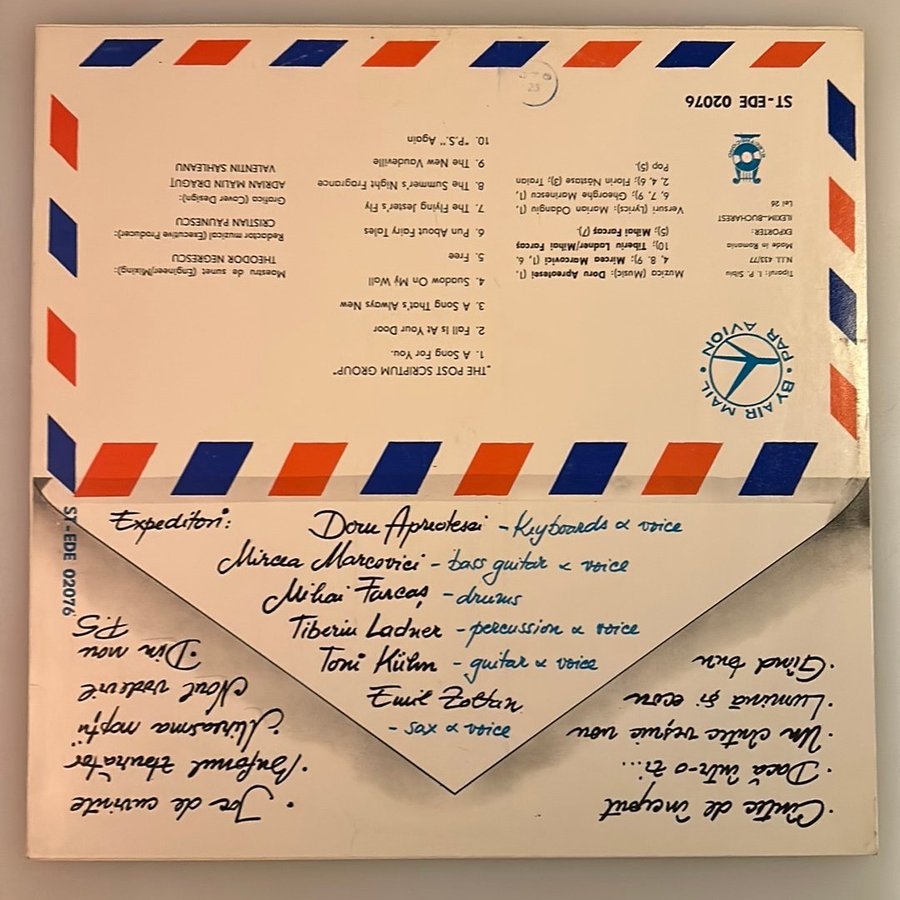 Expeditori:
Doru Apreotesei - Keyboards & voice
Mircea Marcovici - bass guitar & voice
Mihai Farcaș - drums
Tiberiu Ladner - percussion & voice
Toni Kühn - guitar & voice
Emil Zoltan
- sax & voice
ST-EDE 02076
· Cîntec de început
· Dacă într-o zi...
· Un cîntec veșnic nou
· Lumină și ecou
· Gînd bun
· Joc de cuvinte
· Bufonul zburător
· Mireasma nopții
Noul vodevil
· Din nou
P.S
BY AIR MAIL • PAR AVION •
"THE POST SCRIPTUM GROUP"
1. A Song For You.
2. Fall Is At Your Door
3. A Song That's Always New
4. Suadow On My Wall
5. Free
6. Pun About Fairy Tales
7. The Flying Jester's Fly
8. The Summer's Night Fragrance
9. The New Vaudeville
10. "P.S." Again
Maestru de sunet (Engineer/Mixing):
THEODOR NEGRESCU
Redactor muzical (Executive Producer):
CRISTIAN PĂUNESCU
Grafica (Cover Design):
ADRIAN MALIN DRĂGUȚ
VALENTIN SAHLEANU
Muzica (Music): Doru Apreotesei (1,
4, 8, 9); Mircea Marcovici (1, 6,
10); Tiberiu Ladner/Mihai Farcaș
(5); Mihai Farcaș (7).
Versuri (Lyrics): Marian Odangiu (1,
6, 7, 9); Gheorghe Marinescu (1,
2, 4, 6); Florin Năstase (3); Traian
Pop (5).
Tiparul: I. P. Sibiu
N.I.I. 433/77
Made in Romania
EXPORTER:
ILEXIM–BUCHAREST
Lei 26
ST-EDE 02076